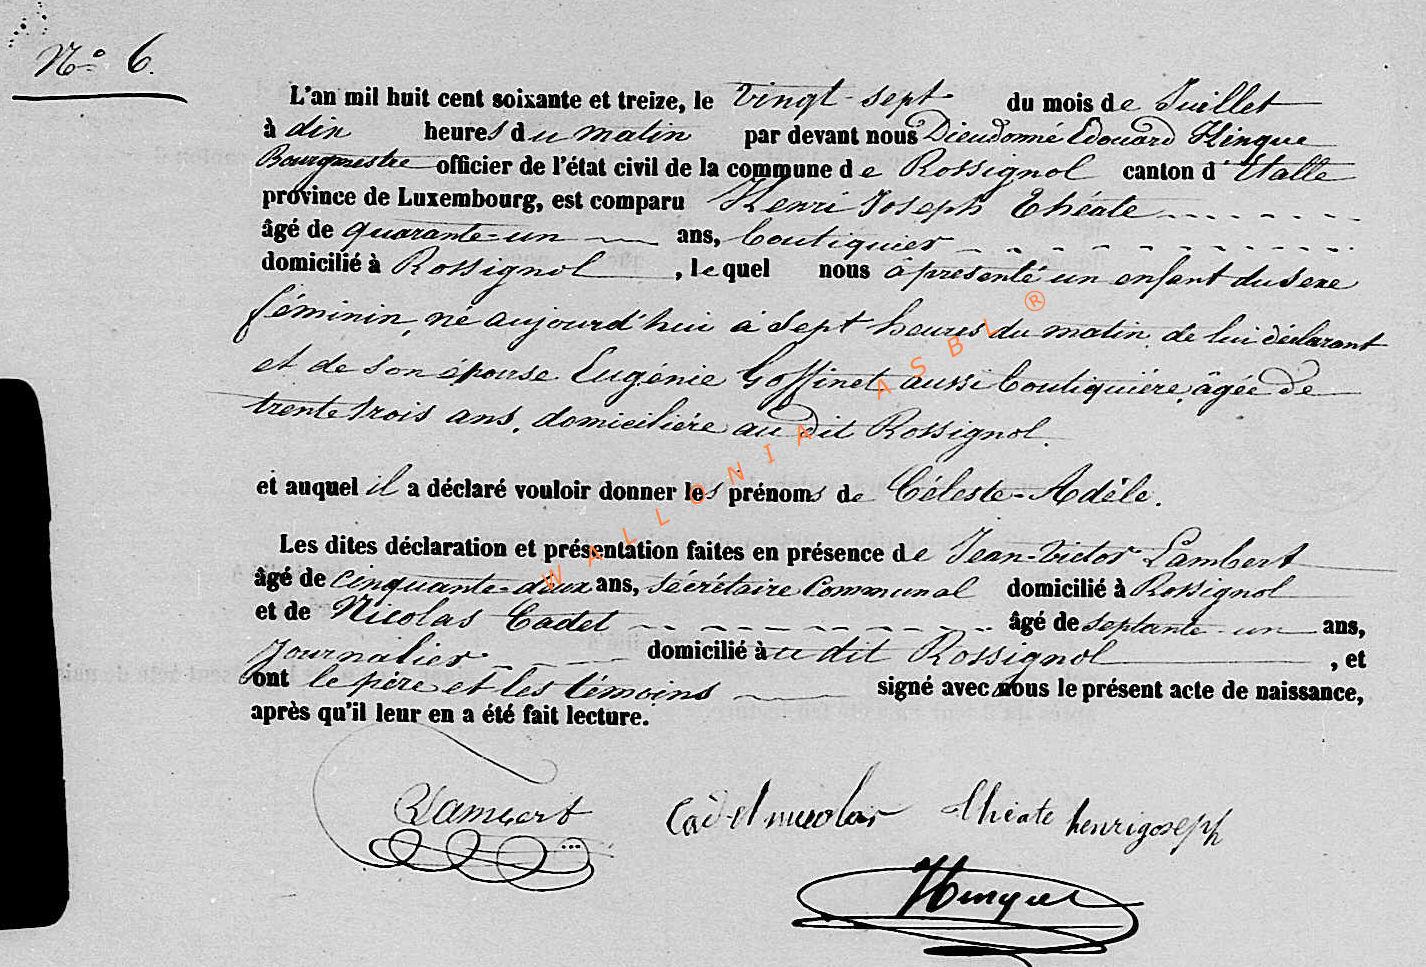 No 6.
L'an mil huit cent soixante et treize, le vingt-sept du mois de Juillet
à dix heures du matin par devant nous Dieudonné Edouard Hinque
Bourgmestre officier de l'état civil de la commune de Rossignol canton d'Etalle
province de Luxembourg, est comparu Henri Joseph Théate
âgé de quarante-un ans, boutiquier
domicilié à Rossignol, lequel nous à présenté un enfant du sexe
féminin, né aujourd'hui à sept heures du matin, de lui déclarant
et de son épouse Eugénie Goffinet aussi boutiquière, âgée de
trente trois ans, domiciliére au dit Rossignol.
et auquel il a déclaré vouloir donner les prénoms de Céleste-Adèle.
Les dites déclaration et présentation faites en présence de Jean-Victor Lambert
âgé de cinquante-deux ans, sécrétaire communal domicilié à Rossignol
et de Nicolas Cadet âgé de septante-un ans,
journalier domicilié au dit Rossignol, et
ont le père et les témoins signé avec nous le présent acte de naissance,
après qu'il leur en a été fait lecture.
Lambert Cadet nicolas théate henri joseph
Hinque
WALLONIA ASBL ®